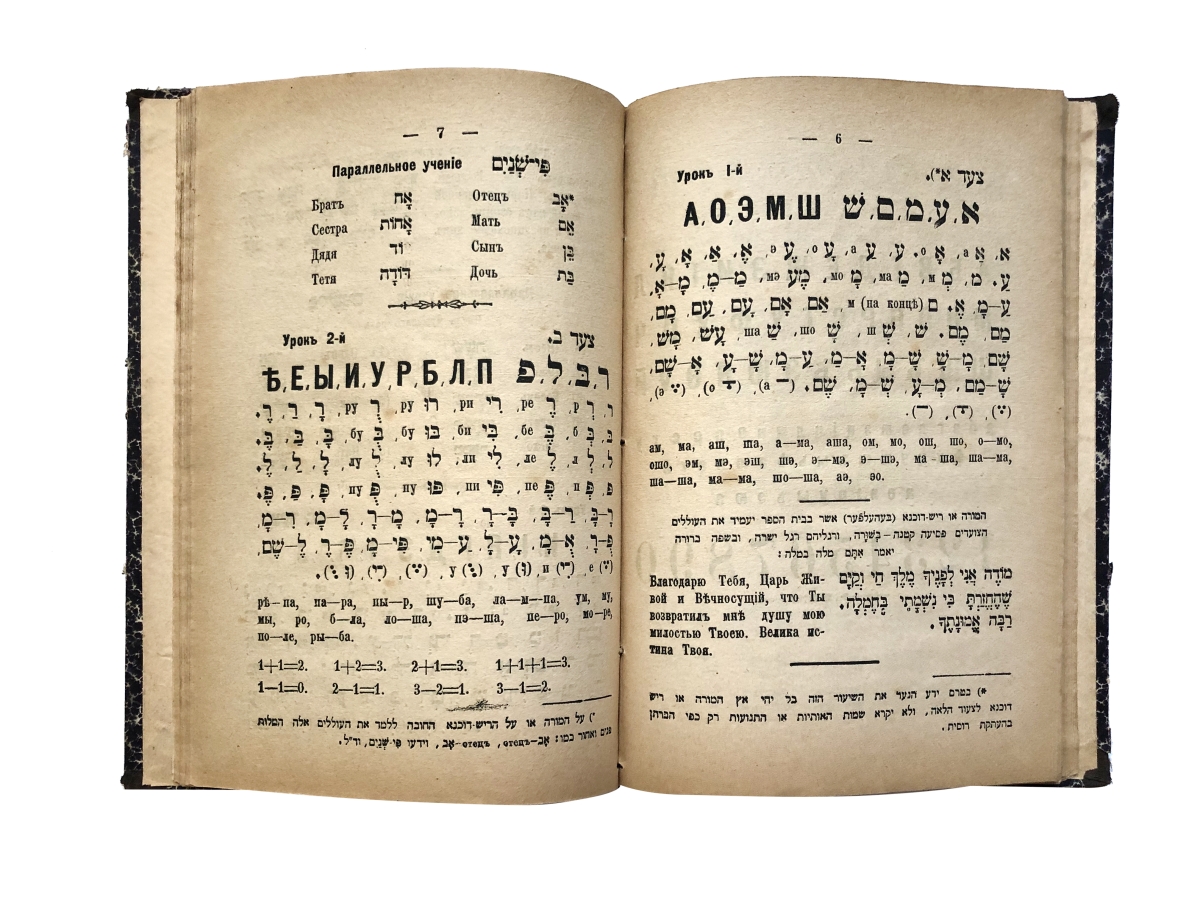 — 6 —
Урокъ I-й צעד א*).
א, ע, מ, ם, שׁ А, О, Э, М, Ш
א, אַ а, אָ о. ע, עַ а, עָ о, עֶ э אֶ, אַ, אָ, עָ,
עַ. מ, מְ м, מַ ма, מָ мо, מֶ мэ מֶע, מַ—מֶ, מָ—אָ,
עַ—מָ אֶ. ם м (на концѣ) אַם, אָם, עָם, עַם, מָם,
מַם, מֶם. שׁ, שְׁ ш, שָׁ шо, שַׁ ша עָשׁ, מָשׁ,
שָׁם, מָ—שׁ, שָׁ—מָ, אָ—מַ, עַ—מָ, שָׁ—עָ, אָ—שָׁם,
שָׁ—מַם, מָ—עָ, שָׁ—מָ, שָׁם. (־ а) (ָ о) (ֶ э),
(ֶ), (ָ), (־).
ам, ма, аш, ша, а—ма, аша, ом, мо, ош, шо, о—мо,
ошо, эм, мэ, эш, шэ, э—мэ, э—шэ, ма—ша, ша—ма,
ша—ша, ма—ма, шо—ша, аэ, эо.
המורה או ריש־דוכנא (בעהעלפֿער) אשר בבית הספר יעמיד את העוללים
הצועדים פסיעה קטנה־בְּשׁוּרָה, ורגליהם רגל ישרה, ובשפה ברורה
יאמר אִתָּם מלה במלה:
מוֹדֶה אֲנִי לְפָנֶיךָ מֶלֶךְ חַי וְקַיָּם
שֶׁהֶחֱזַרְתָּ בִּי נִשְׁמָתִי בְּחֶמְלָה.
רַבָּה אֱמוּנָתֶךָ.
Благодарю Тебя, Царь Жи-
вой и Вѣчносущій, что Ты
возвратилъ мнѣ душу мою
милостью Твоею. Велика ис-
тина Твоя.
*) בטרם ידע הנער את השיעור הזה בל יהי אץ המורה או ריש
דוכנא לצעוד הלאה, ולא יקרא שמות האותיות או התנועות רק כפי הברתן
בהעתקת רוסית.
— 7 —
Параллельное ученіе פִּי־שְׁנַיִם
*אָב Отецъ אָח Братъ
אֵם Мать אָחוֹת Сестра
בֵּן Сынъ דּוֹד Дядя
בַּת Дочь דּוֹדָה Тетя
Урокъ 2-й צעד ב.
ר, בּ, ל, פּ Ѣ, Е, Ы, И, У, Р, Б, Л, П
ר, רְ р, רֶ ре, רִי ри, רוּ ру, רֻ ру, רָ, רַ, רֶ,
בּ, בְּ б, בֶּ бе, בִּי би, בּוּ бу, בֻּ бу, בָּ, בַּ, בֶּ,
ל, לְ л, לֶ ле, לִי ли, לוּ лу, לֻ лу, לָ, לַ, לֶ,
פּ, פְּ п, פֶּ пе, פִּי пи, פּוּ пу, פֻּ пу, פָּ, פַּ, פֶּ,
рѣ—па, па—ра, пы—р, шу—ба, ла—м—па, ум, му,
мы, ро, б—ла, ло—ша, пэ—ша, пе—ро, мо—ре,
по—ле, ры—ба.
1+1=2. 1+2=3. 2+1=3. 1+1+1=3.
1—1=0. 2—1=1. 3—2=1. 3—1=2.
*) על המורה או על הריש־דוכנא החובה ללמד את העוללים אלה המלות
פנים ואחור כמו: אָב־отецъ, отецъ־אָב, וידעו פִּי־שְׁנַיִם, וד"ל.